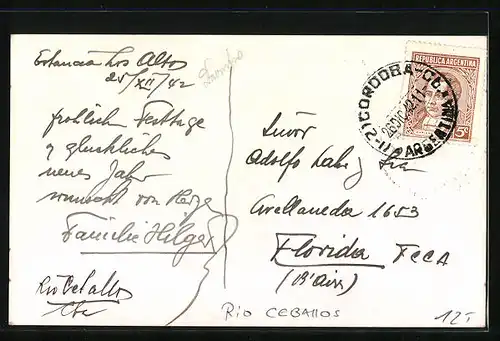 Estancia Los Altos
25/XII/42
fröhliche Festtage
glückliches
neues Jahr
wünscht von Herzen
Familie Hilger
Rio Ceballos
Cba
REPUBLICA ARGENTINA
5c
CORDOBA
ARGENTINA
Señor
Adolfo
Avellaneda 1653
Florida FCCA
(B'Aires)
RIO CEBALLOS
12T